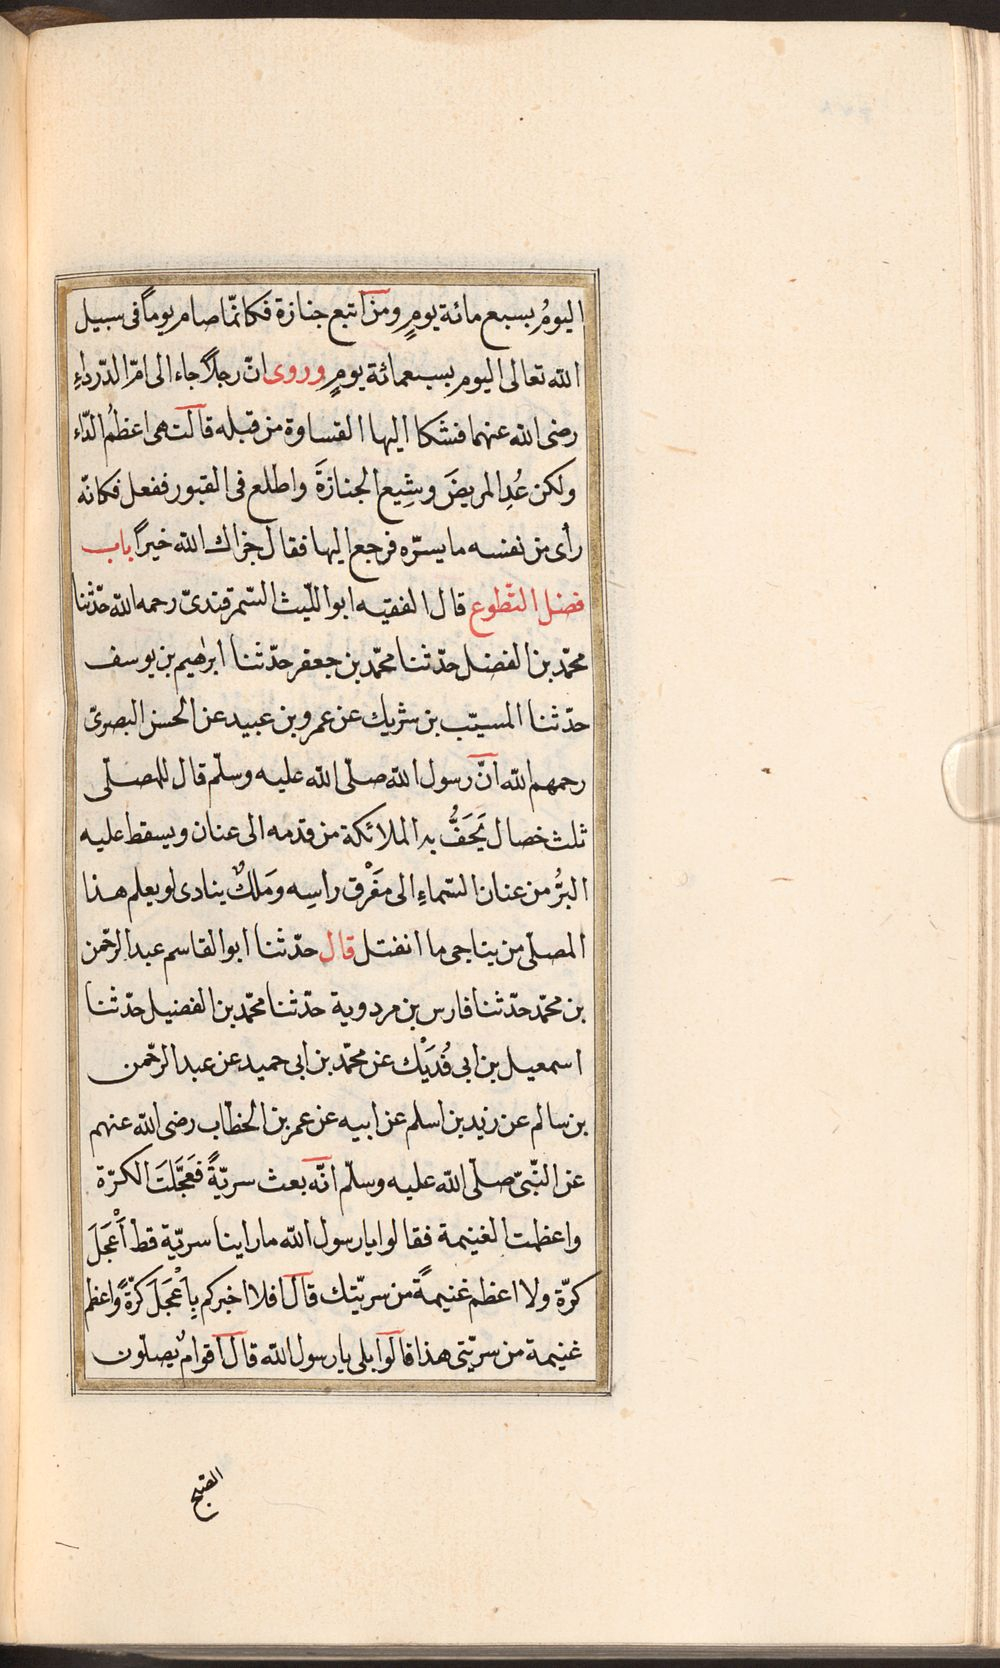 اليومُ بسبع مائة يومٍ ومن اتبع جنازة فكانّما صام يوماً فى سبيل
الله تعالى اليوم بسبعمائة يومٍ وروى انّ رجلاً جاء الى امّ الدّرداءِ
رضى الله عنهما فشكا اليها القساوة من قبله قالت هى اعظمُ الدّاء
ولكن عُدِ المريضَ وشِيع الجنازةَ واطلع فى القبور ففعل فكانّه
رأى من نفسه ما يسرّه فرجع اليها فقال جزاك الله خيراً باب
فضل التّطوع قال الفقيه ابو اللّيث السّمرقندىّ رحمه الله حدّثنا
محمّد بن الفضل حدّثنا محمّد بن جعفر حدّثنا ابرٰهيم بن يوسف
حدّثنا المسيّب بن شريك عن عمرو بن عبيد عن الحسن البصرىّ
رحمهم الله انّ رسول الله صلّى الله عليه وسلّم قال للمصلّى
ثلث خصال يَحَفُّ به الملائكة من قدمه الى عنان ويسقط عليه
البرُّ من عنان السّماءِ الى مَفْرق راسِه ومَلكٌ ينادى لو يعلم هذا
المصلّى من يناجى ما انفتل قال حدّثنا ابو القاسم عبد الرّحمن
بن محمّد حدّثنا فارس بن مردوية حدّثنا محمّد بن الفضيل حدّثنا
اسمعيل بن ابى فُدَيْك عن محمّد بن ابى حميد عن عبد الرّحمن
بن سالم عن زيد بن اسلم عن ابيه عن عمر بن الخطّاب رضى الله عنهم
عن النّبىّ صلّى الله عليه وسلّم انّه بعث سريّةً فَعَجَّلَتَ الكرّة
واعظمت الغنيمة فقالوا يا رسول الله ما راينا سريّة قط أَعْجَلَ
كرّة ولا اعظم غنيمةً من سريّتك قال افلا اخبركم بِاَعْجَلَ كرّةً واعظم
غنيمة من سريّتى هذا قالوا بلى يا رسول الله قال اقوامٌ يصلّون
الصّبح